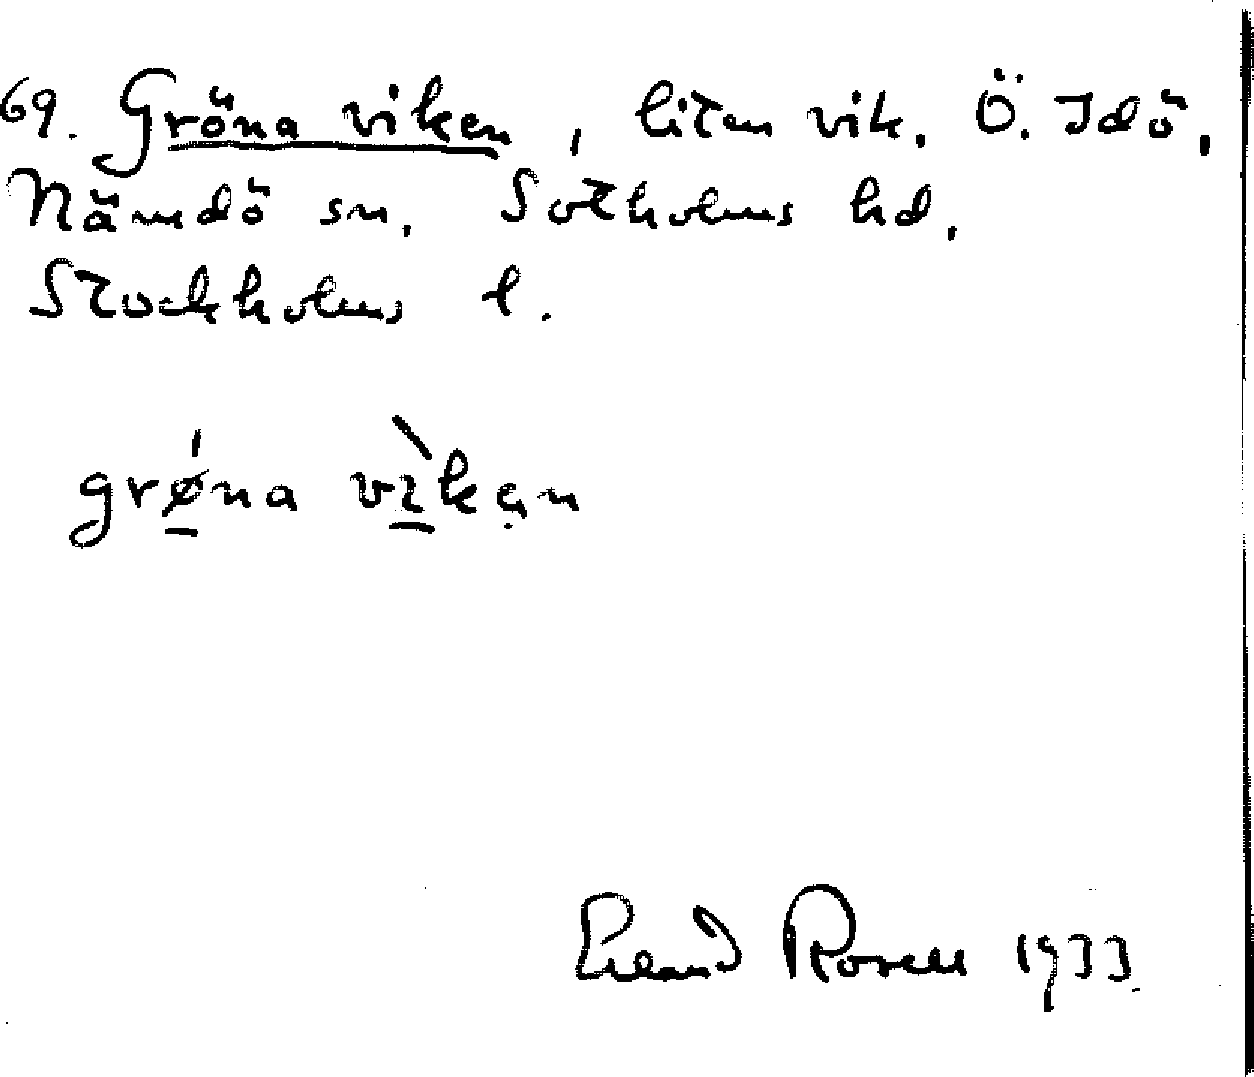 69. Gröna viken, liten vik. Ö. Idö,
Nämdö sn, Sotholms hd,
Stockholms l.
grǿ̱na vɪ̱̀kạn
Erland Rosell 1933